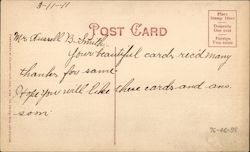 3-11-11
POST CARD
Place
Stamp Here
Domestic
One cent
Foreign
Two cents
Mr. Russell B. Smith.
Your beautiful card, rec'd many
thanks for same
Hope you will like these cards and ans.
soon